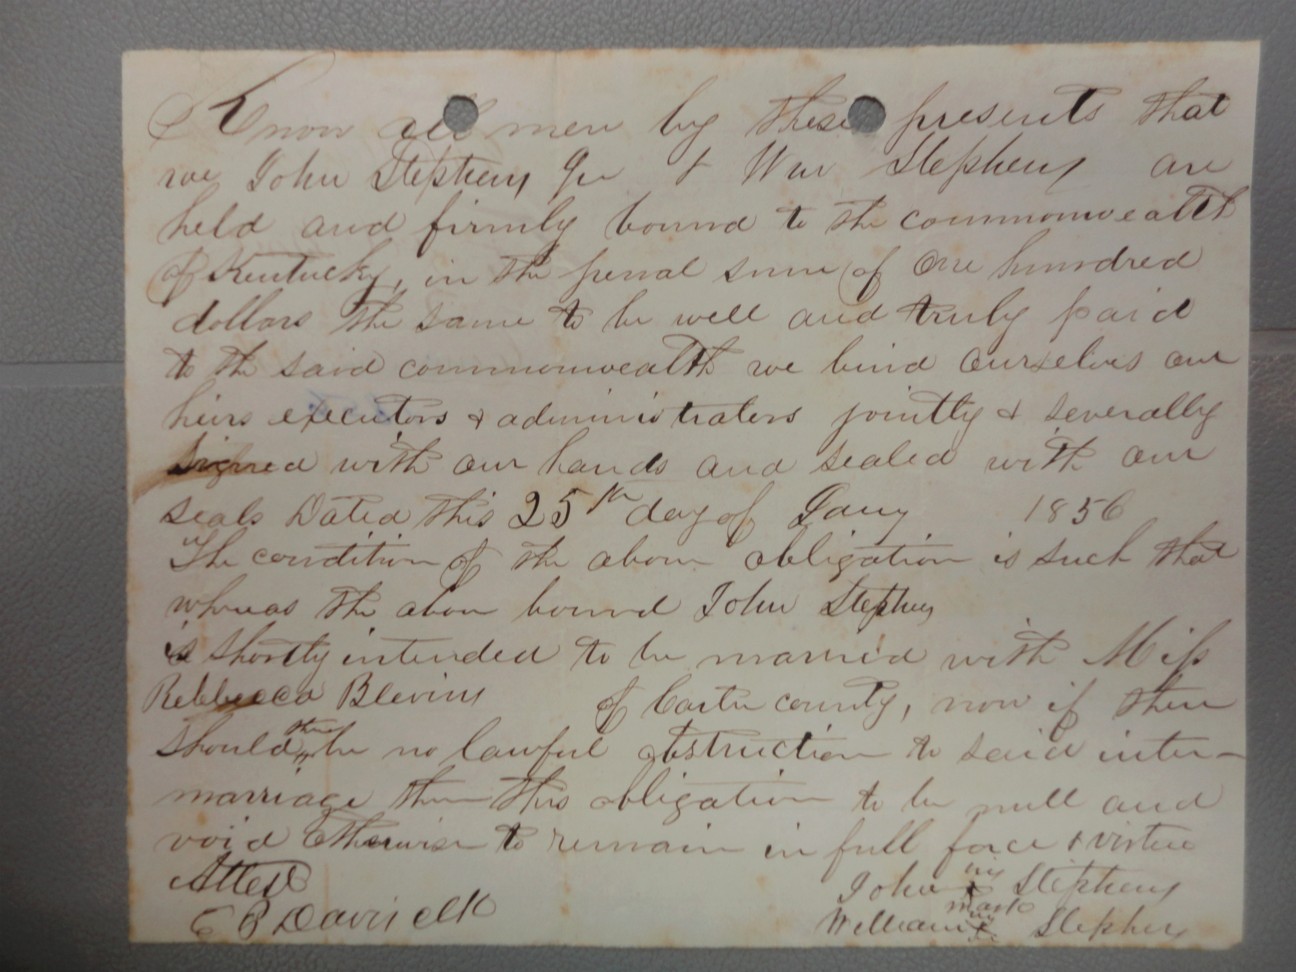 Know all men by these presents that
we John Stephens Jr & Wm Stephens are
held and firmly bound to the commonwealth
of Kentucky, in the penal sum of One hundred
dollars the same to be well and truly paid
to the said commonwealth we bind ourselves our
heirs executors & administrators jointly & severally
Signed with our hands and sealed with our
seals Dated this 25th day of Jany 1856
The condition of the above obligation is such that
whereas the above bound John Stephens
is shortly intended to be married with Miss
Rebbecca Blevins of Carter county, now if there
should there be no lawful obstruction to said inter-
marriage then this obligation to be null and
void Otherwise to remain in full force & virtue
Attest John his x mark Stephens
C B Davis clk William his x Stephens